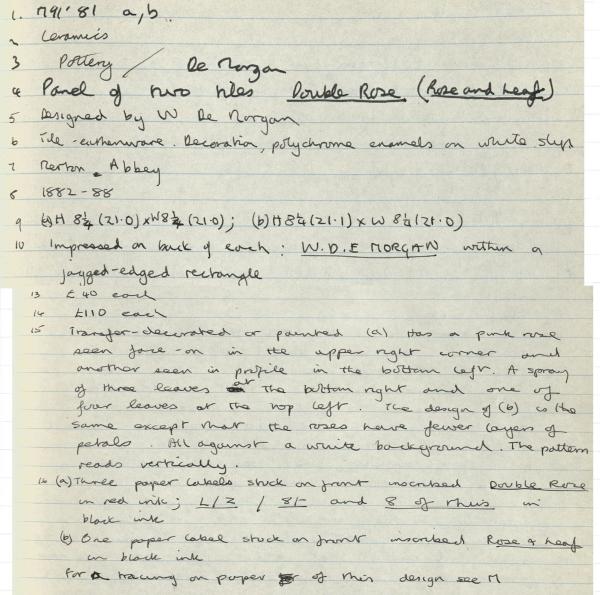 1. M91'81 a, b.
2 Ceramics
3 Pottery / De Morgan
4 Panel of two tiles Double Rose (Rose and Leaf)
5 Designed by W De Morgan
6 Tile - earthenware. Decoration, polychrome enamels on white slip
7 Merton Abbey
8 1882-88
9 (a) H 8¼ (21.0) x W 8¼ (21.0); (b) H 8¼ (21.1) x W 8¼ (21.0)
10 Impressed on back of each: W.D.E MORGAN within a
jagged-edged rectangle
13 £40 each
14 £110 each
15 Transfer-decorated or painted (a) Has a pink rose
seen face-on in the upper right corner and
another seen in profile in the bottom left. A spray
of three leaves at the bottom right and one of
four leaves at the top left. The design of (b) is the
same except that the roses have fewer layers of
petals. All against a white background. The pattern
reads vertically.
16 (a) Three paper labels stuck on front inscribed Double Rose
in red ink; L/2 / 8/- and 8 of this in
black ink
(b) One paper label stuck on front inscribed Rose & Leaf
in black ink
For tracing on paper of this design see M